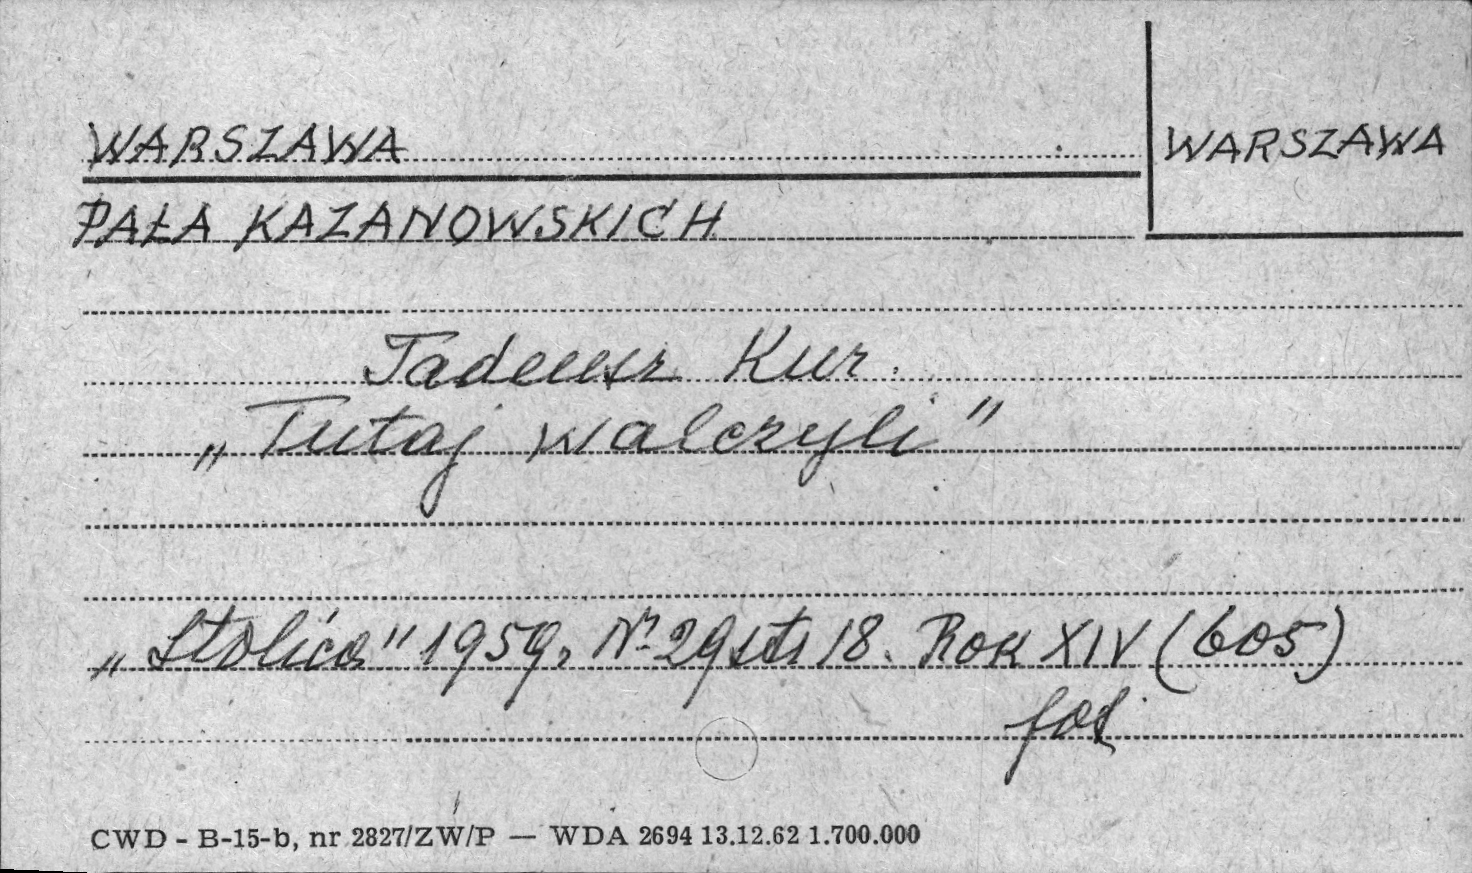 WARSZAWA
WARSZAWA
PAŁA KAZANOWSKICH
Tadeusz Kur.
„Tutaj walczyli”
„Stolica” 1959, Nr 29 str 18. Rok XIV (605)
fot
CWD - B-15-b, nr 2827/ZW/P — WDA 2694 13.12.62 1.700.000